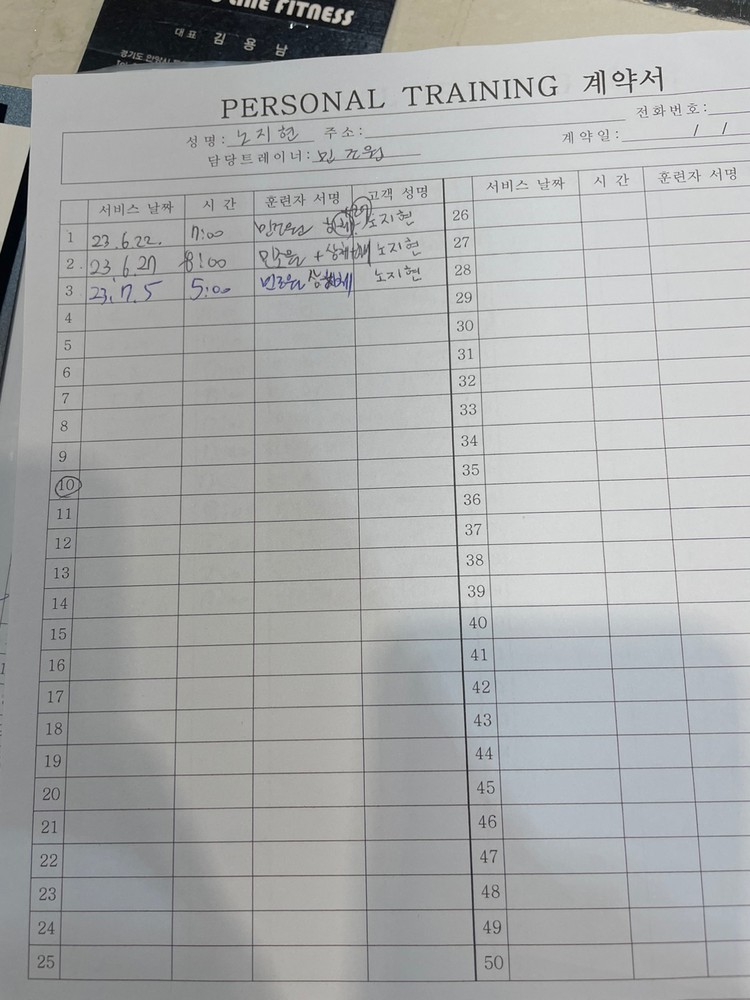 LINE FITNESS
대표 김용남
경기도 안양시
PERSONAL TRAINING 계약서
성명: 노지현 주소: 전화번호:
담당트레이너: 민조원 계약일: / /
서비스 날짜 시 간 훈련자 서명 고객 성명 서비스 날짜 시 간 훈련자 서명
1 23.6.22. 7:00 민조원 노지현 26
2 23 6.27 8:00 민조원 노지현 27
3 23.7.5 5:00 민조원 상하체 노지현 28
4 29
5 30
6 31
7 32
8 33
9 34
10 35
11 36
12 37
13 38
14 39
15 40
16 41
17 42
18 43
19 44
20 45
21 46
22 47
23 48
24 49
25 50